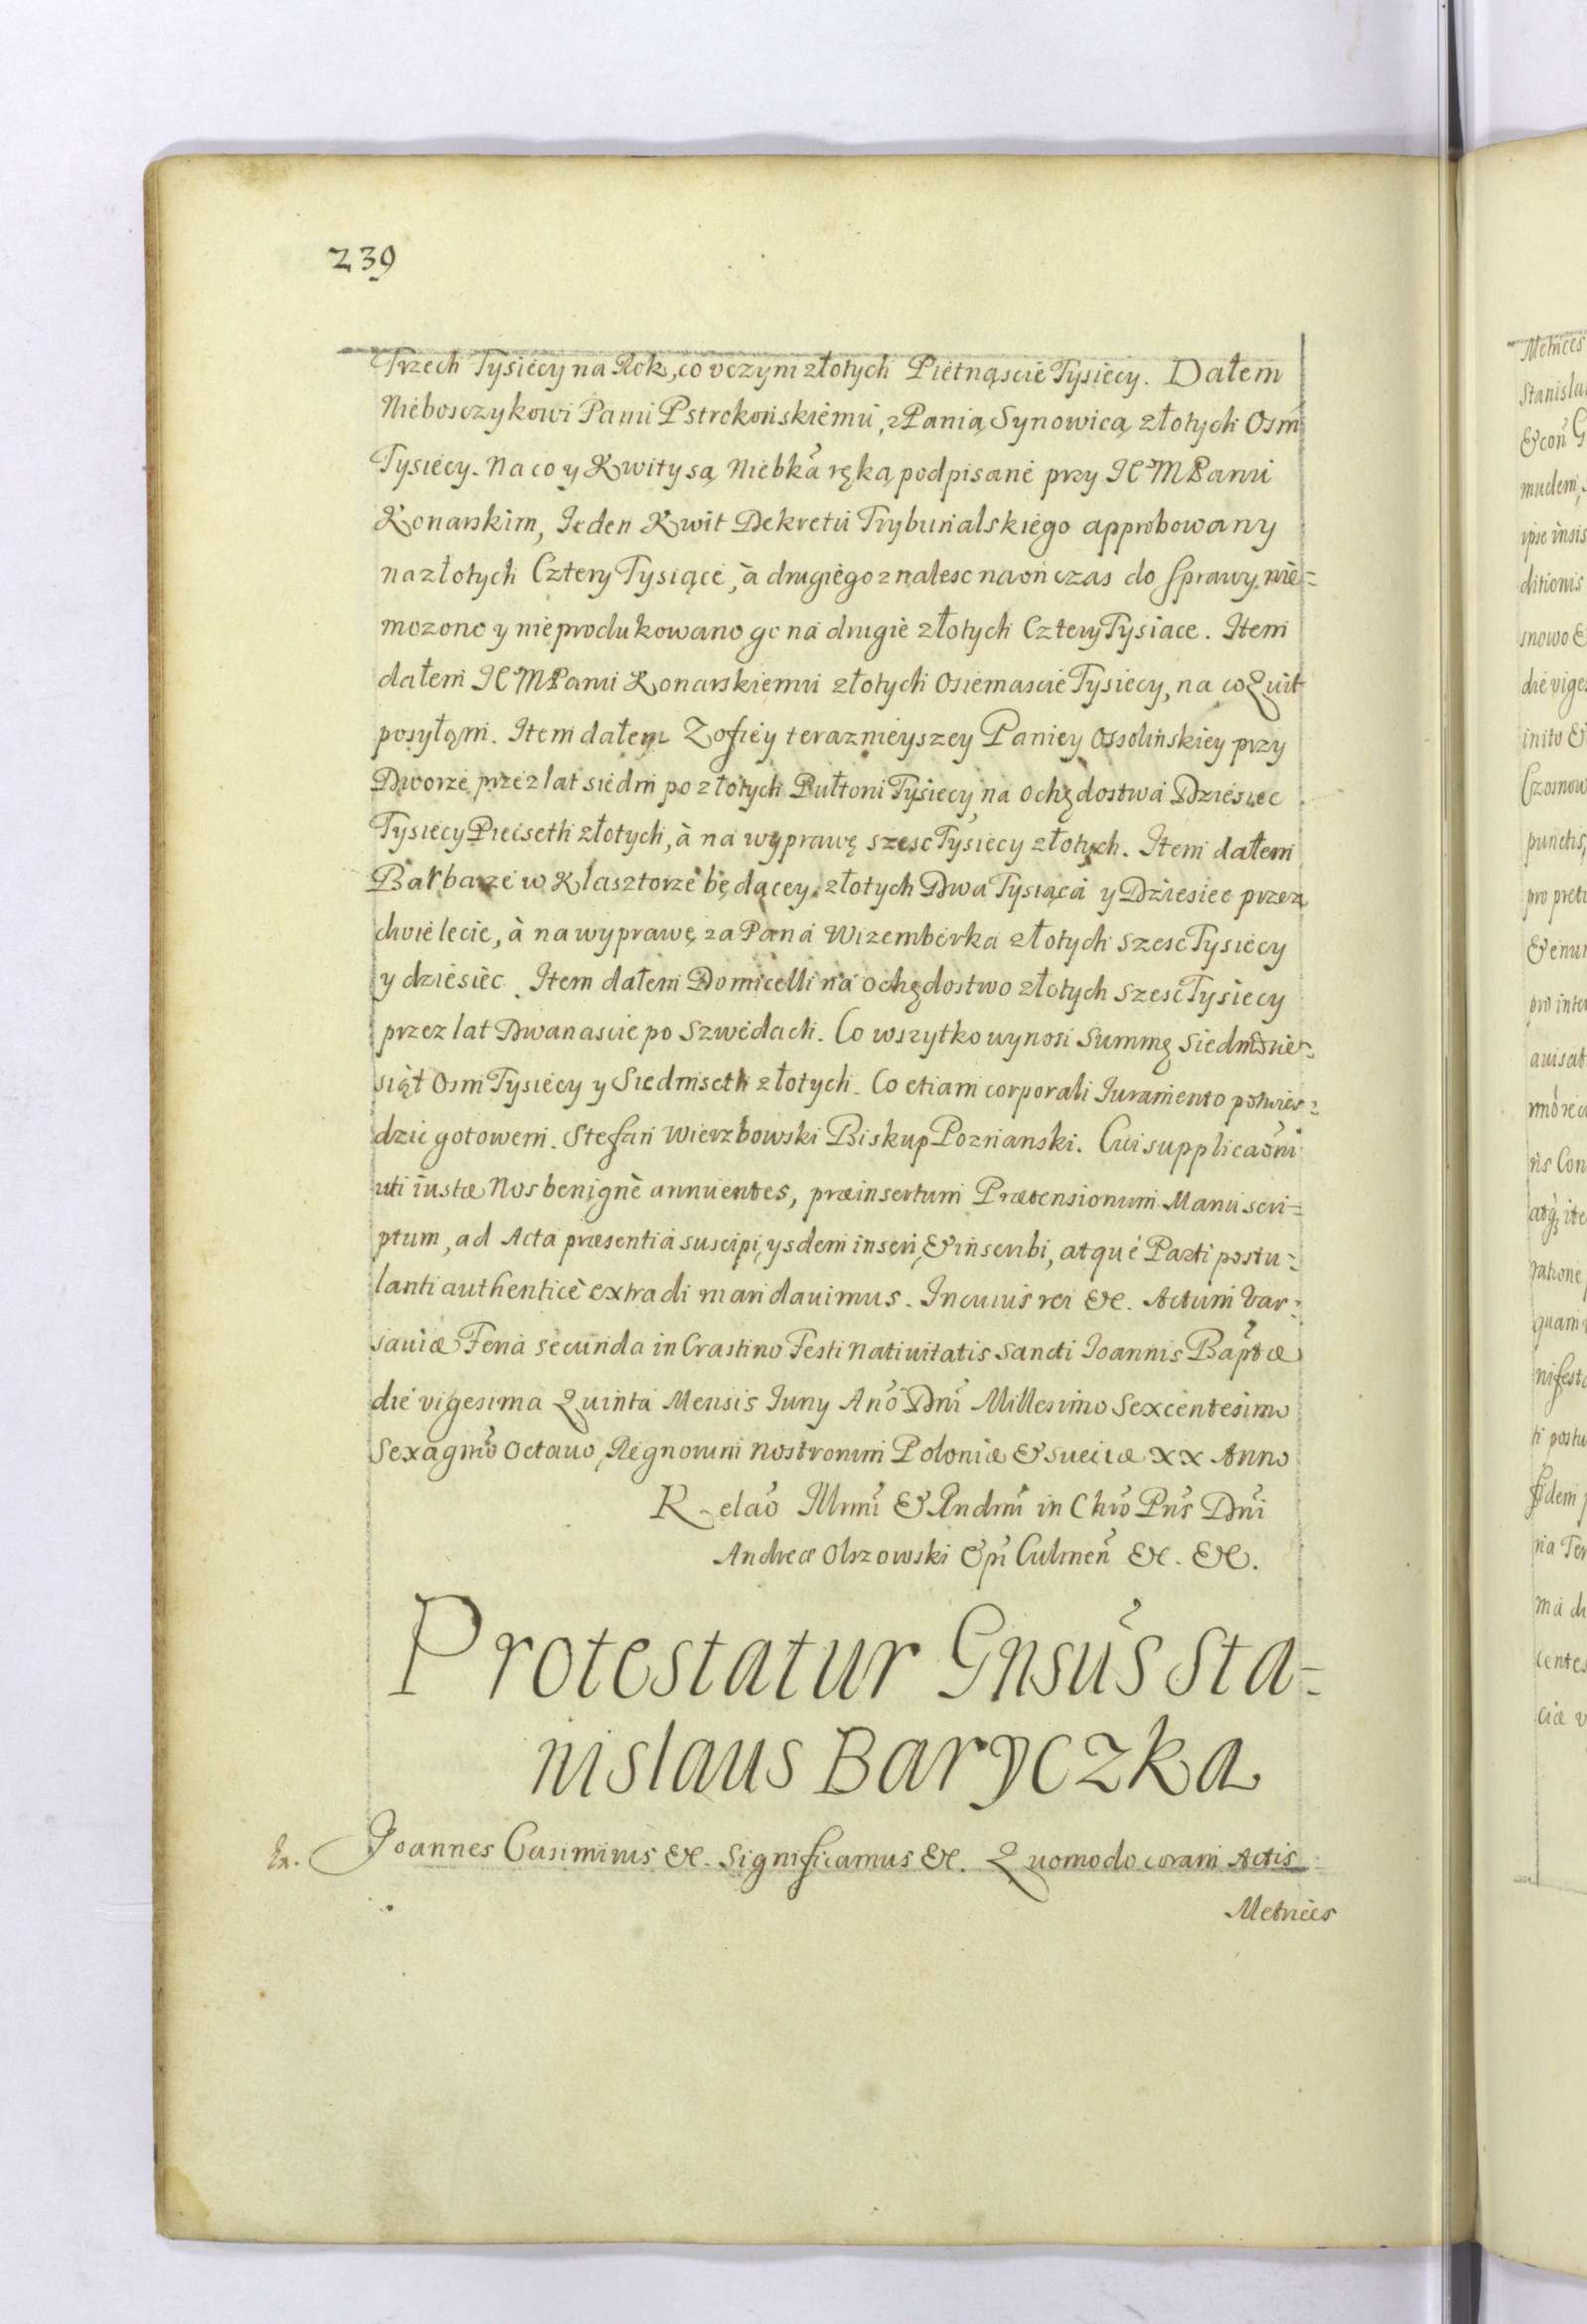 239
Trzech Tysiecy na Rok, co vczyni złotych Piętnąscie Tysiecy. Dałem
Nieboszczykowi Panu Pstrokońskiemu, z Panią Synowicą złotych Osm
Tysiecy. Na co y Kwity są Niebka ręką podpisane przy JeMPanu
Konarskim, Jeden Kwit Dekretu Trybunalskiego approbowany
na złotych Cztery Tysiące, à drugiego znalesc na on czas do sprawy nie=
mozono y nie produkowano go na drugie złotych Cztery Tysiace. Item
dałem JeMPanu Konarskiemu złotych Osiemascie Tysiecy, na co Quit
posyłam. Item dałem Zofiey teraznieyszey Paniey Ossolinskiey przy
Dworze przez lat siedm po złotych Pułtoni Tysiecy na ochędostwa Dziesiec
Tysiecy Pieciseth złotych, à na wyprawę szesc Tysiecy złotych. Item dałem
Barbarze w Klasztorze będącey złotych Dwa Tysiąca y Dziesiec przez
choie lecie, à na wyprawę za Pana Wizemberka złotych szesc Tysiecy
y dziesiec. Item dałem Domicelli na ochędostwo złotych szesc Tysiecy
przez lat Dwanascie po Szwedach. Co wszytko wynosi Summę Siedmdzie=
siąt Osm Tysiecy y Siedmseth złotych. Co etiam corporali Juramento potwier=
dzic gotowem. Stefan Wierzbowski Biskup Poznanski. Cui supplicaoni
uti iustæ Nos benignè annuentes, præinsertum Prætensionum Manuscri=
ptum, ad Acta præsentia suscipi, ysdem inseri, & inscribi, atque Parti postu=
lanti authenticè extradi mandauimus. In cuius rei &c. Actum Var=
sauiæ Feria secunda in Crastino Festi Natiuitatis Sancti Joannis Baptæ
die vigesima Quinta Mensis Juny Ano Dni Millesimo Sexcentesimo
Sexagmo Octauo, Regnorum nostrorum Poloniæ & Sueciæ XX Anno
Relao Illrmi & Rndmi in Chro Pris Dni
Andreæ Olszowski Epi Culmen &c. &c.
Protestatur Gnsus Sta=
nislaus Baryczka
Joannes Casimirus &c. Significamus &c. Quomodo coram Actis
Metrices